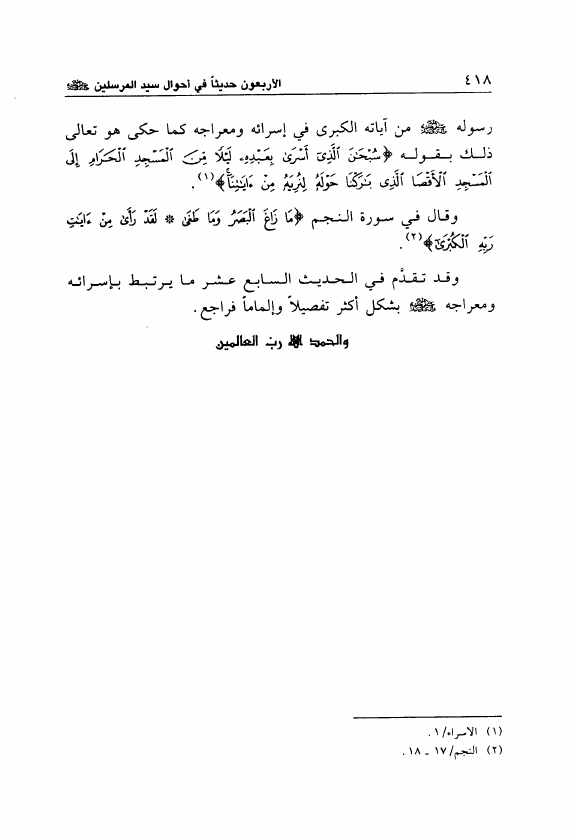 ٤١٨ الأربعون حديثاً في أحوال سيد المرسلين ﷺ
رسوله ﷺ من آياته الكبرى في إسرائه ومعراجه كما حكى هو تعالى
ذلك بقوله ﴿سُبْحَٰنَ ٱلَّذِىٓ أَسْرَىٰ بِعَبْدِهِۦ لَيْلًا مِّنَ ٱلْمَسْجِدِ ٱلْحَرَامِ إِلَى
ٱلْمَسْجِدِ ٱلْأَقْصَا ٱلَّذِى بَٰرَكْنَا حَوْلَهُۥ لِنُرِيَهُۥ مِنْ ءَايَٰتِنَآ﴾(١).
وقال في سورة النجم ﴿مَا زَاغَ ٱلْبَصَرُ وَمَا طَغَىٰ * لَقَدْ رَأَىٰ مِنْ ءَايَٰتِ
رَبِّهِ ٱلْكُبْرَىٰٓ﴾(٢).
وقد تقدَّم في الحديث السابع عشر ما يرتبط بإسرائه
ومعراجه ﷺ بشكل أكثر تفصيلاً وإلماماً فراجع.
والحمد لله رب العالمين
(١) الاسراء/١.
(٢) النجم/١٧ ـ ١٨.